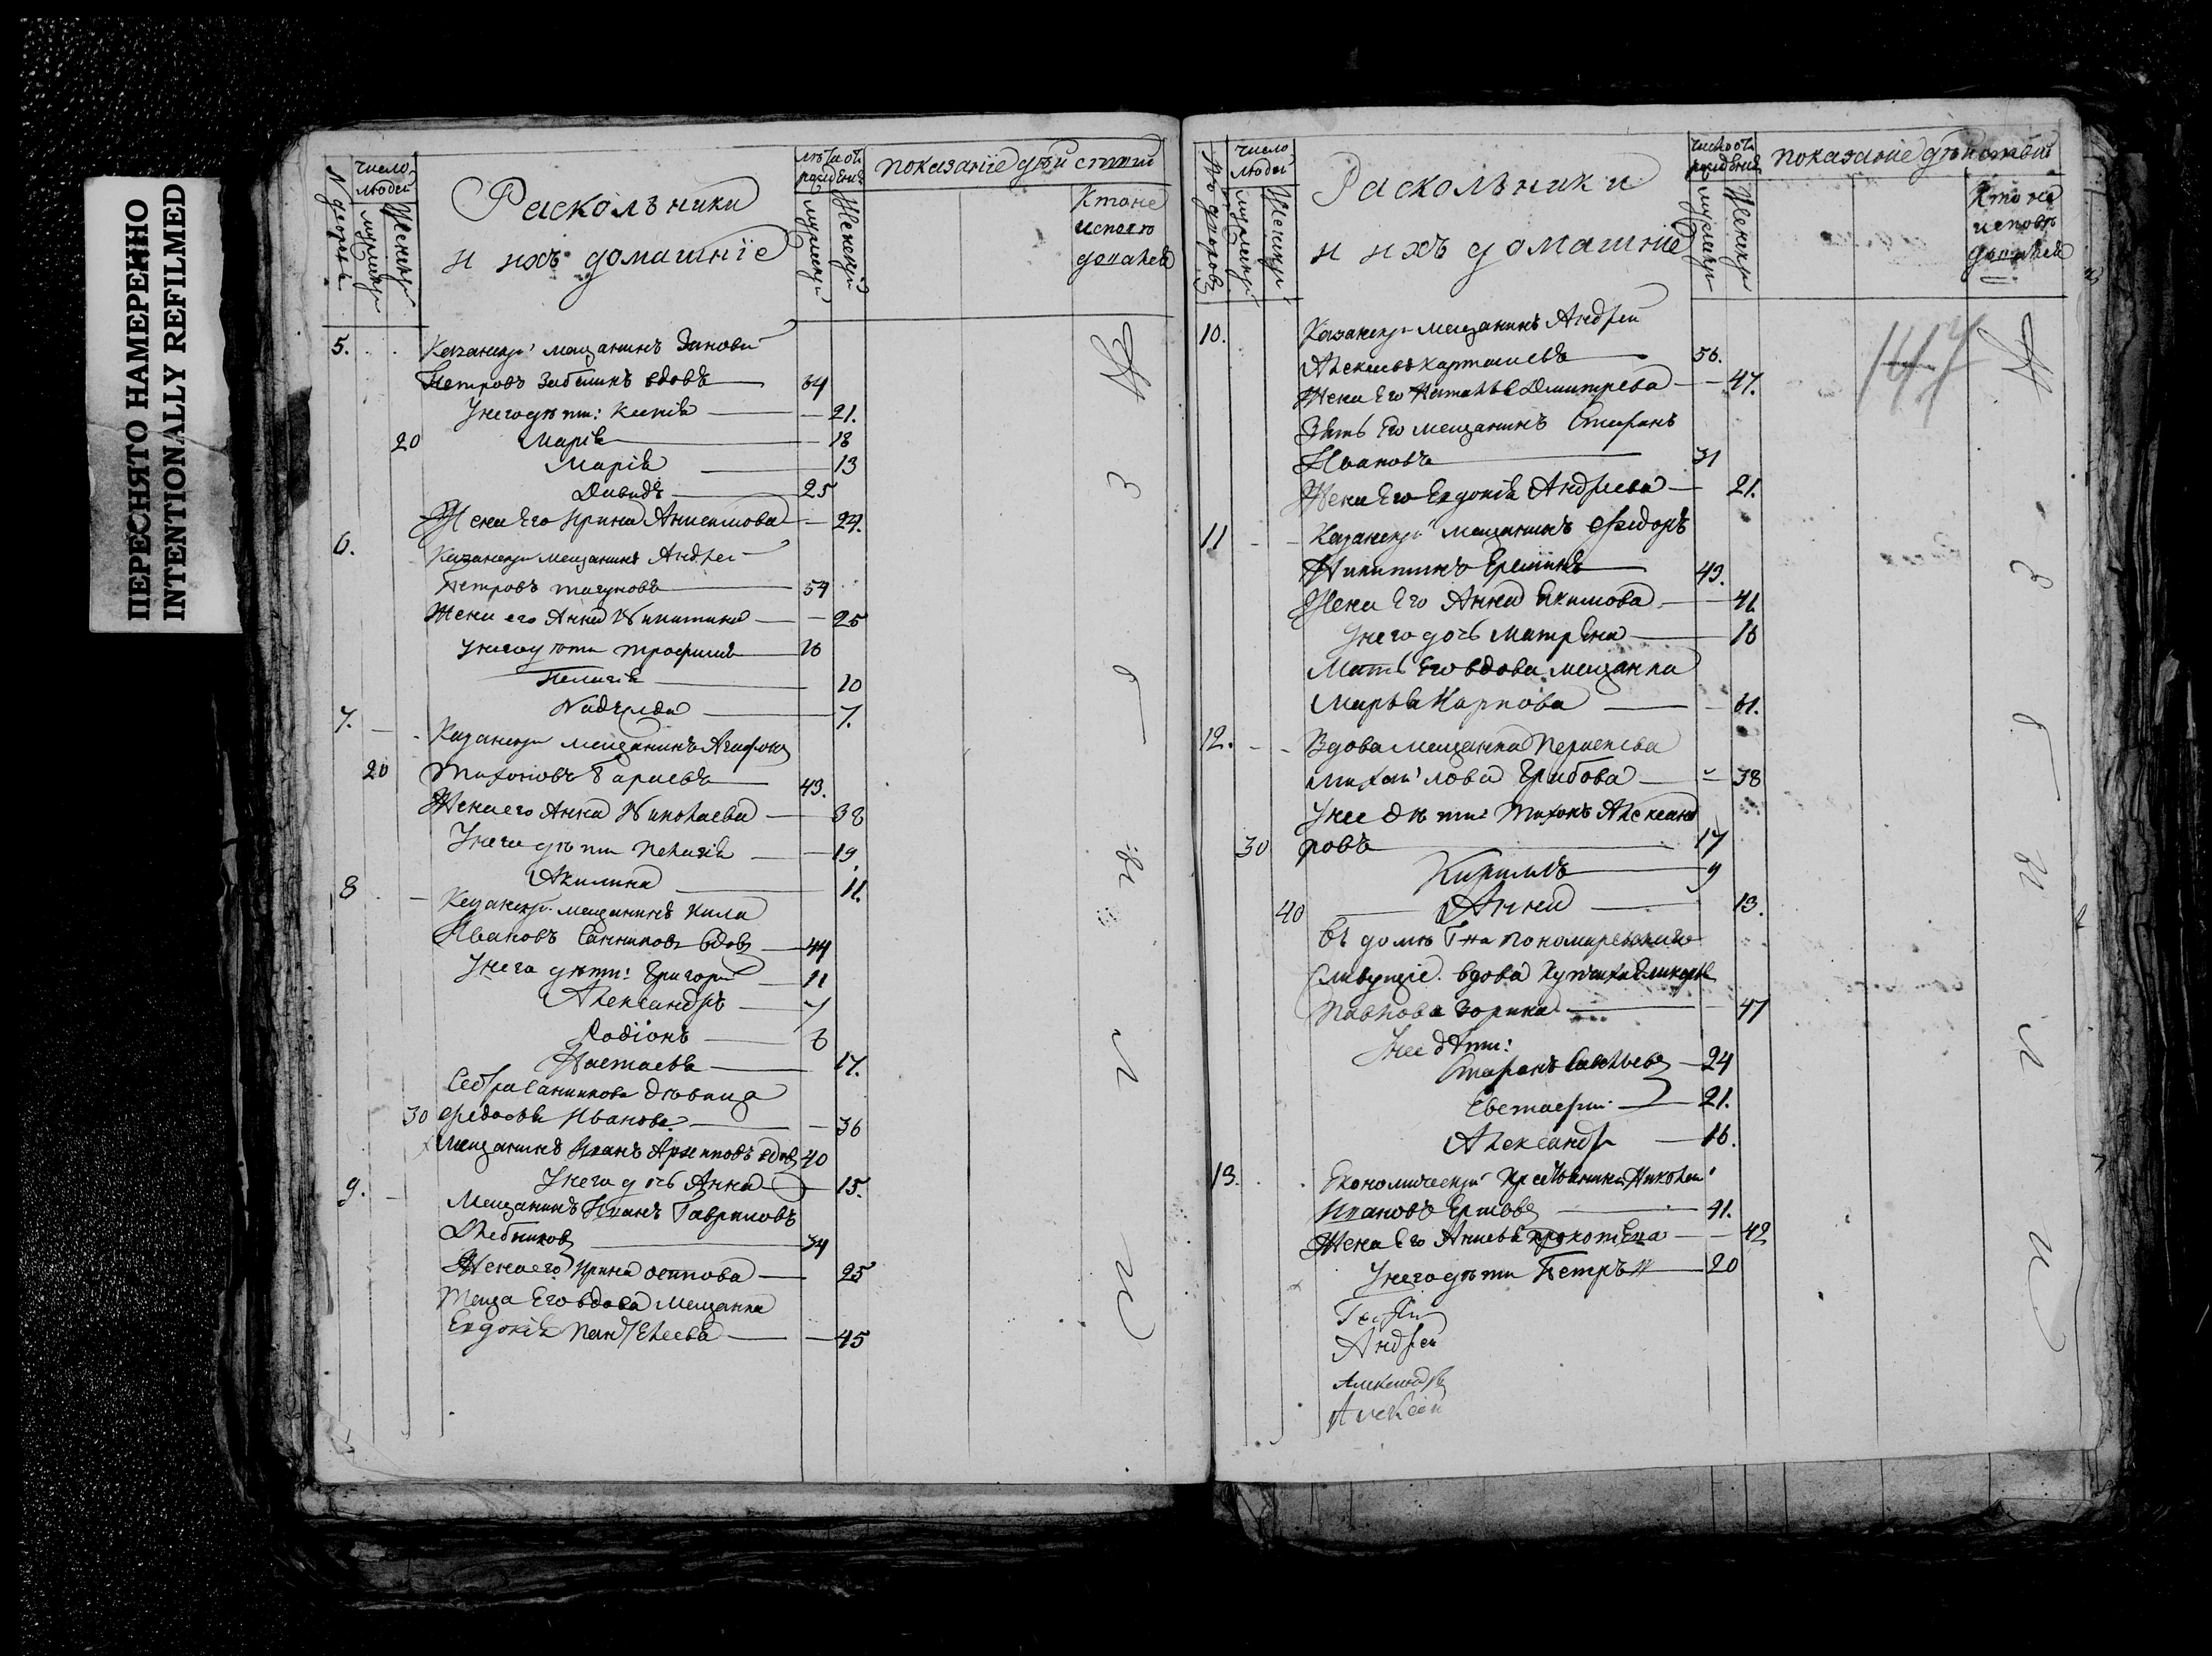 ПЕРЕСНЯТО НАМЕРЕННО
INTENTIONALLY REFILMED
число людей
мужеск
Женск
Раскольники
и ихъ домашніе
лѣта отъ рожденія
мужеск
Женскій
показаніе дѣйствий
Кто не исповѣдовался
5.
Казанский мещанинъ Зиновий
Петровъ вдовъ 64
У него дѣти: Ксенія 21.
20 Марія 18
Марія 13
Давидъ 25
Жена Его Ирина Анисимова 24.
6. Казанский мещанинъ Андрей
Петровъ 54
Жена его Анна Никитина 25
У него дѣти Трофимъ 16
Пелагія 10
Надежда 7.
7. Казанский мещанинъ Агафонъ
20 Тихоновъ 43.
Жена его Анна Николаева 38
У него дѣти Пелагія 19
Акилина 11.
8 Казанский мещанинъ
Ивановъ Санниковъ вдовъ 44
У него дѣти: Григорий 11
Александръ 7
Родіонъ 6
Настасья 17.
Сестра Санникова дѣвица
30 Федосья Иванова 36
Мещанинъ Иванъ Архиповъ вдовъ 40
У него дочь Анна 15.
9. Мещанинъ Иванъ Гавриловъ
Хлебниковъ 34
Жена его Ирина Осипова 25
Теща Его вдова Мещанка
Евдокія Пантелеева 45
№ дворовъ
число людей
мужеск
Женск
Раскольники
и ихъ домашніе
число отъ рожденія
мужеск
Женск
показаніе дѣйствий
Кто не исповѣдовался
147
10. Казанский мещанинъ Андрей
Алексѣевъ Карташевъ 56.
Жена Его Наталья Дмитрева 47.
Зять Его мещанинъ Стефанъ
Ивановъ 31
Жена Его Евдокія Андреева 21.
11 Казанский мещанинъ Федоръ
Никитинъ 43.
Жена Его Анна Екимова 41
У него дочь Матрена 16
Мать Его вдова мещанка
Марья Карпова 61.
12. Вдова мещанка
Михайлова Грибова 38
У нее дѣти: Тихонъ Александ
30 ровъ 17
Кирилъ 9
40 Анна 13.
въ домѣ Г-на
вдова
Павлова Зорина 47
У нее дѣти:
Стефанъ Савельевъ 24
Евстафий 21.
Александръ 16.
13. Економический Крестьянинъ Николай
Ивановъ Ершовъ 41.
Жена Его Анисья Прокопьева 42
У него дѣти Петръ 20
Андрей
Александръ
Алексей